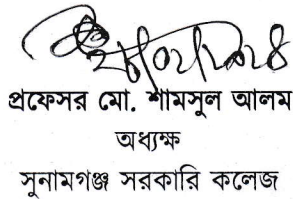 প্রফেসর মো. শামসুল আলম
অধ্যক্ষ
সুনামগঞ্জ সরকারি কলেজ